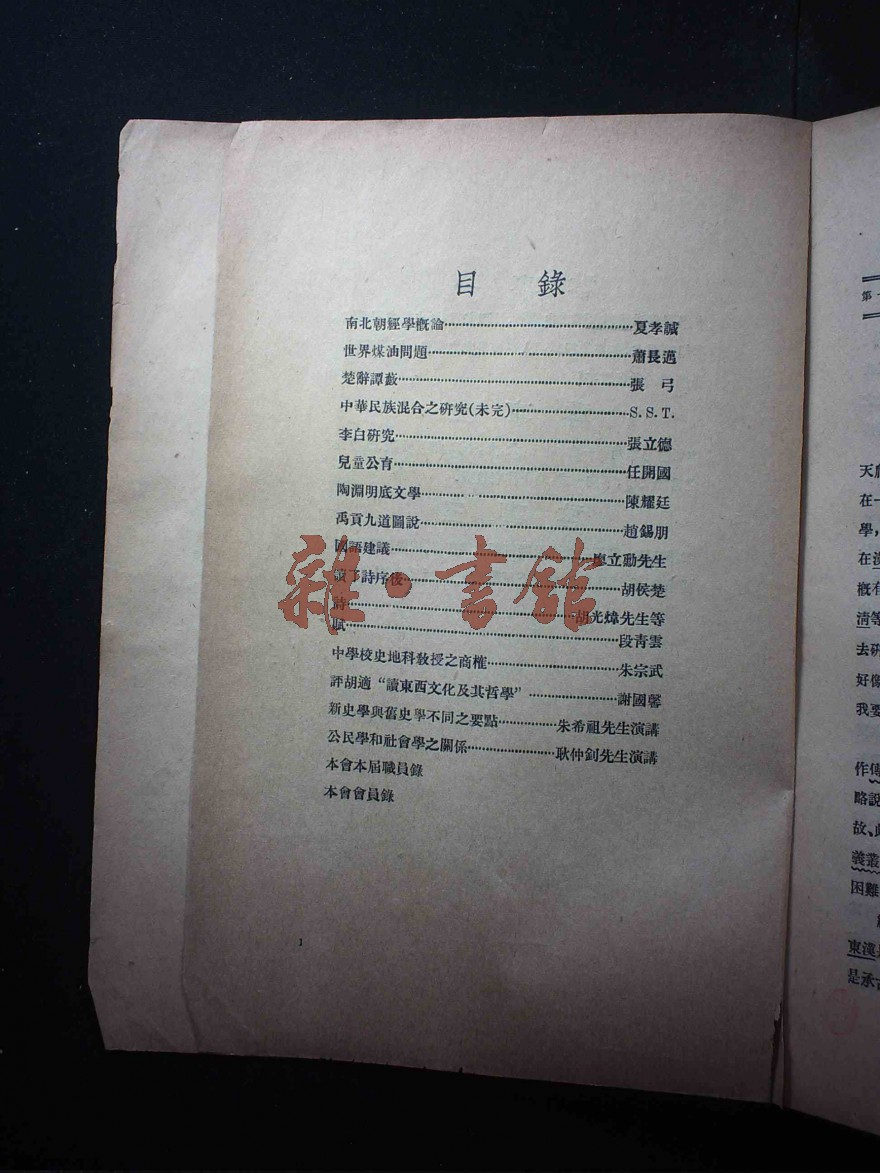 目 錄
南北朝經學概論……夏孝誠
世界煤油問題……蕭長邁
楚辭譚藪……張 弓
中華民族混合之研究(未完)……S. S. T.
李白研究……張立德
兒童公育……任開國
陶淵明底文學……陳耀廷
禹貢九道圖說……趙錫朋
國語建議……廖立勳先生
讀 詩序後……胡侯楚
詩……胡光煒先生等
賦……段青雲
中學校史地科教授之商榷……朱宗武
評胡適“讀東西文化及其哲學”……謝國馨
新史學與舊史學不同之要點……朱希祖先生演講
公民學和社會學之關係……耿仲釗先生演講
本會本屆職員錄
本會會員錄
1
雜·書館
第
在一
學,
在
概有
清等
去研
好像
我要
作傳
略說
故、
義叢
困難
東漢
是承